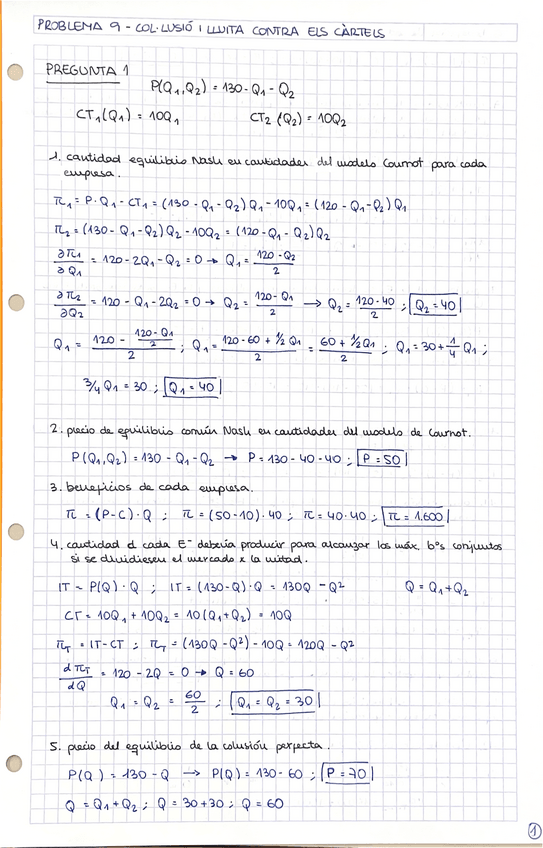 PROBLEMA 9 - COL·LUSIÓ I LLUITA CONTRA ELS CÀRTELS
PREGUNTA 1
P(Q1,Q2) = 130 - Q1 - Q2
CT1(Q1) = 10Q1 CT2(Q2) = 10Q2
1. cantidad equilibrio Nash en cantidades del modelo Cournot para cada
empresa.
π1 = P·Q1 - CT1 = (130 - Q1 - Q2)Q1 - 10Q1 = (120 - Q1 - Q2)Q1
π2 = (130 - Q1 - Q2)Q2 - 10Q2 = (120 - Q1 - Q2)Q2
∂π1/∂Q1 = 120 - 2Q1 - Q2 = 0 → Q1 = (120 - Q2)/2
∂π2/∂Q2 = 120 - Q1 - 2Q2 = 0 → Q2 = (120 - Q1)/2 → Q2 = (120 - 40)/2 ; Q2 = 40
Q1 = (120 - (120 - Q1)/2)/2 ; Q1 = (120 - 60 + 1/2 Q1)/2 = (60 + 1/2 Q1)/2 ; Q1 = 30 + 1/4 Q1 ;
3/4 Q1 = 30 ; Q1 = 40
2. precio de equilibrio común Nash en cantidades del modelo de Cournot.
P(Q1,Q2) = 130 - Q1 - Q2 → P = 130 - 40 - 40 ; P = 50
3. beneficios de cada empresa.
π = (P - C)·Q ; π = (50 - 10)·40 ; π = 40·40 ; π = 1.600
4. cantidad q cada Eª debería producir para alcanzar los máx. bºs conjuntos
si se dividiesen el mercado x la mitad.
IT = P(Q)·Q ; IT = (130 - Q)·Q = 130Q - Q² Q = Q1 + Q2
CT = 10Q1 + 10Q2 = 10(Q1 + Q2) = 10Q
πT = IT - CT ; πT = (130Q - Q²) - 10Q = 120Q - Q²
dπT/dQ = 120 - 2Q = 0 → Q = 60
Q1 = Q2 = 60/2 ; Q1 = Q2 = 30
5. precio del equilibrio de la colusión perfecta.
P(Q) = 130 - Q → P(Q) = 130 - 60 ; P = 70
Q = Q1 + Q2 ; Q = 30 + 30 ; Q = 60
1